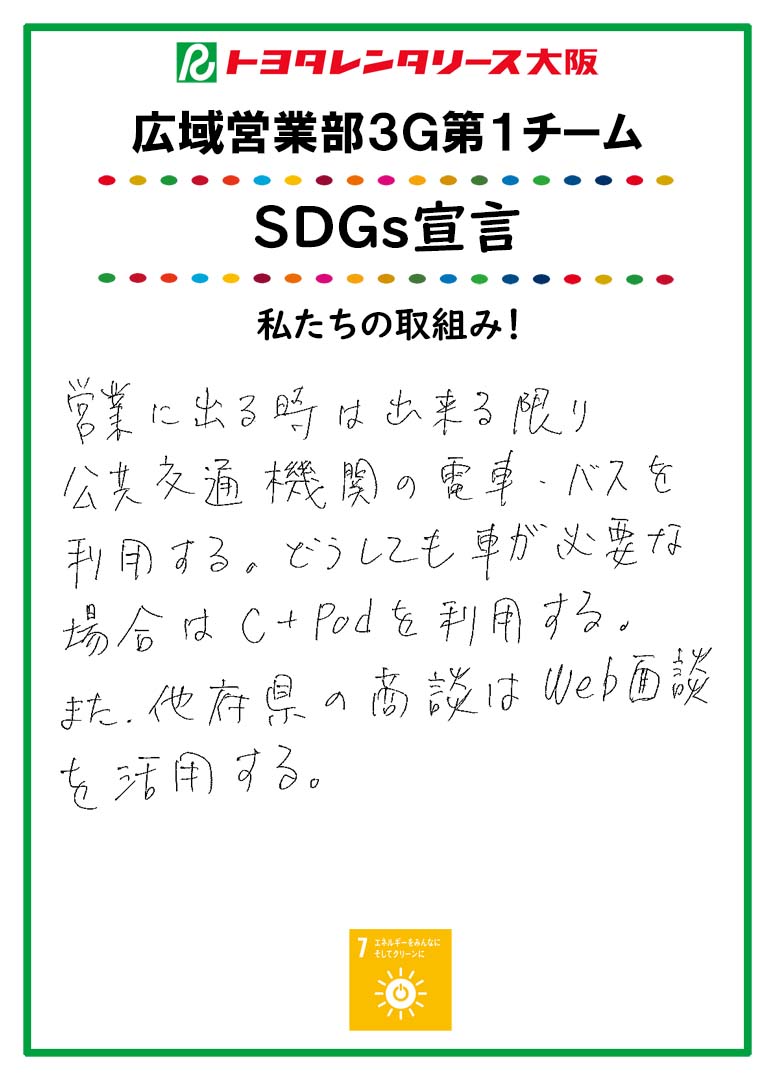 トヨタレンタリース大阪
広域営業部3G第1チーム
SDGs宣言
私たちの取組み！
営業に出る時は出来る限り
公共交通機関の電車・バスを
利用する。どうしても車が必要な
場合はC+Podを利用する。
また、他府県の商談はWeb面談
を活用する。
7 エネルギーをみんなに
そしてクリーンに